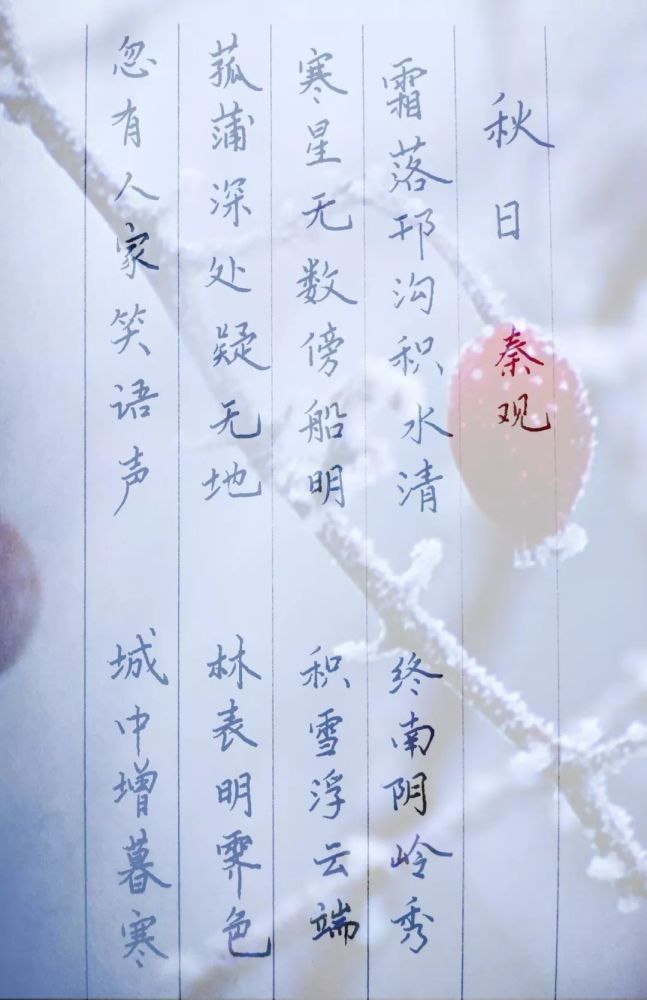 秋日
秦观
霜落邗沟积水清
寒星无数傍船明
菰蒲深处疑无地
忽有人家笑语声
终南阴岭秀
积雪浮云端
林表明霁色
城中增暮寒